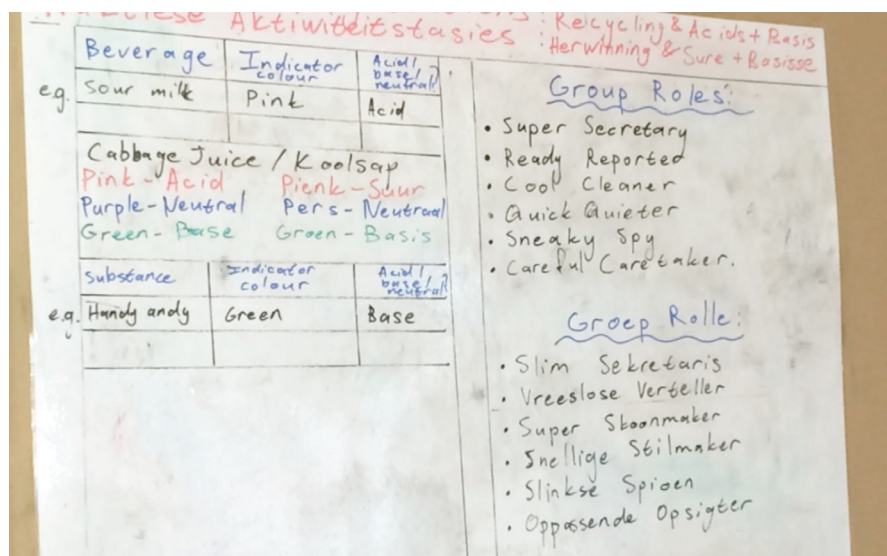 Aktiwiteitstasies : Recycling & Acids + Basis
: Herwinning & Sure + Basisse
Beverage Indicator colour Acid/ base/ neutral?
e.g. Sour milk Pink Acid
Cabbage Juice / Koolsap
Pink - Acid Pienk - Suur
Purple - Neutral Pers - Neutraal
Green - Base Groen - Basis
Substance Indicator colour Acid/ base/ neutral?
e.g. Handy andy Green Base
Group Roles:
• Super Secretary
• Ready Reported
• Cool Cleaner
• Quick Quieter
• Sneaky Spy
• Careful Caretaker.
Groep Rolle:
• Slim Sekretaris
• Vreeslose Verteller
• Super Skoonmaker
• Snellige Stilmaker
• Slinkse Spioen
• Oppassende Opsigter